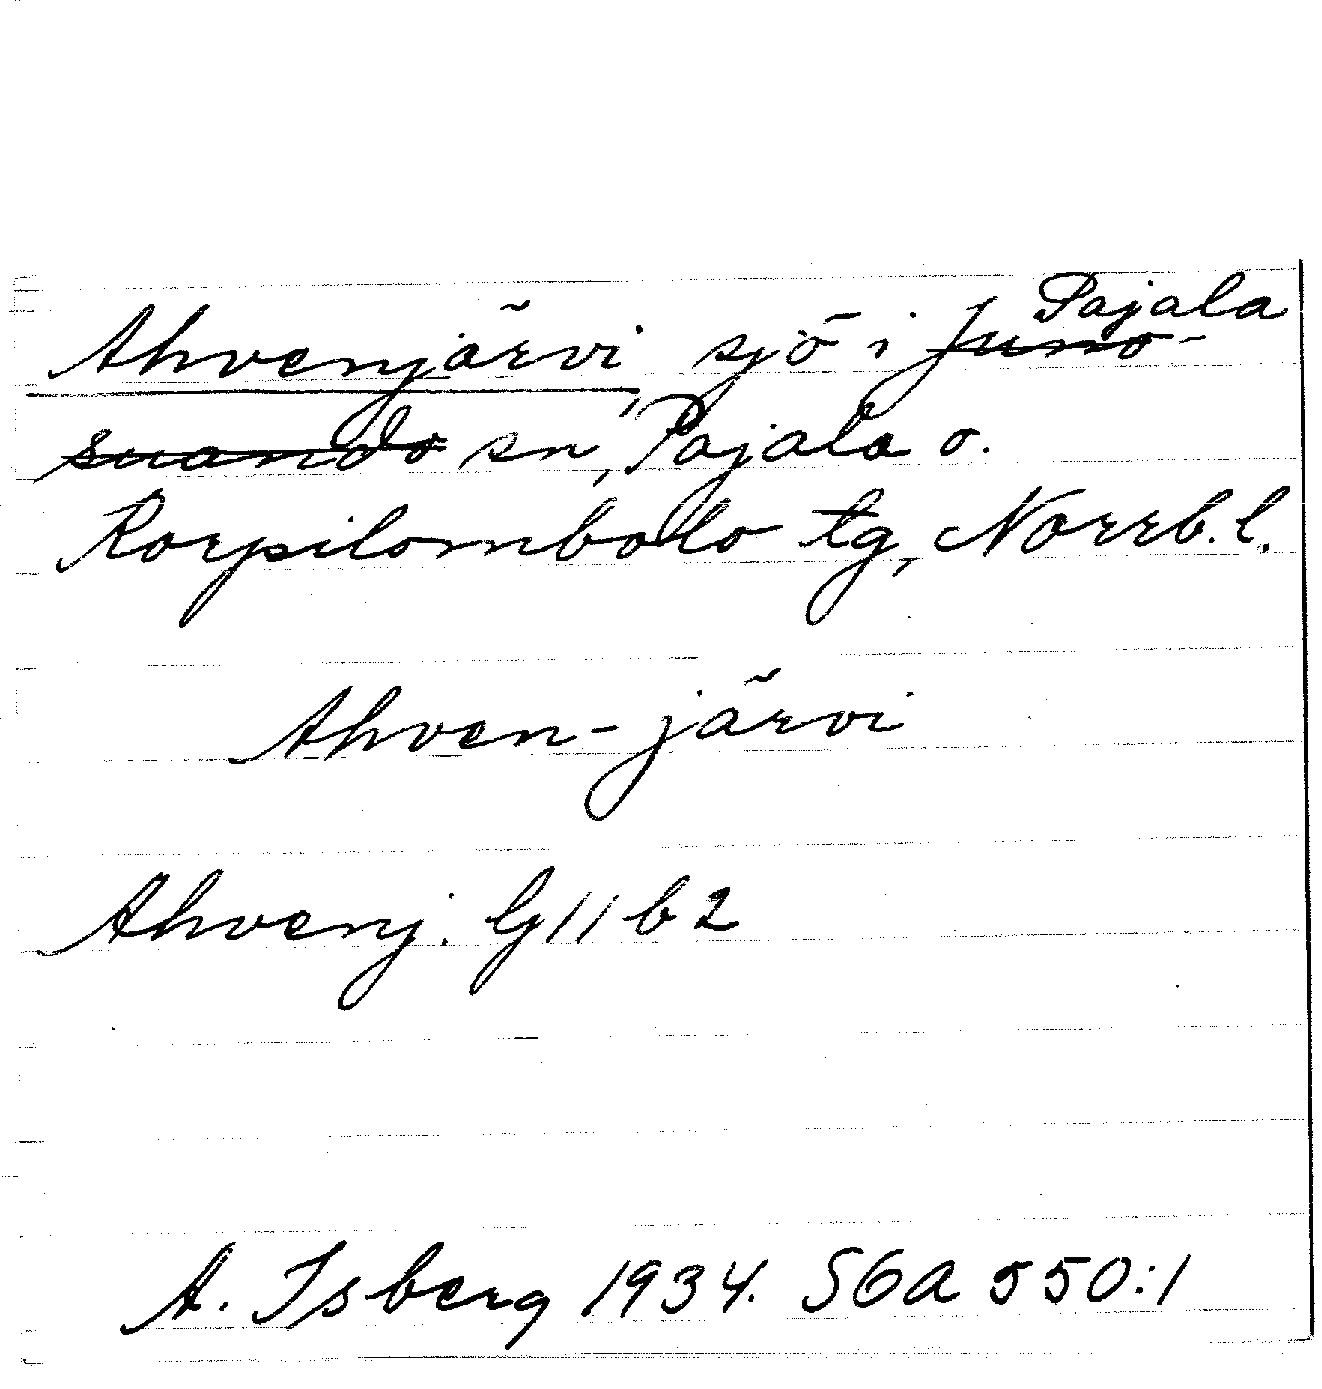 Ahvenjärvi, sjö i Juno- Pajala
suando sn, Pajala o.
Korpilombolo tg, Norrb.l.
Ahven-järvi
Ahvenj. G11b2
A. Isberg 1934. SGA 550:1